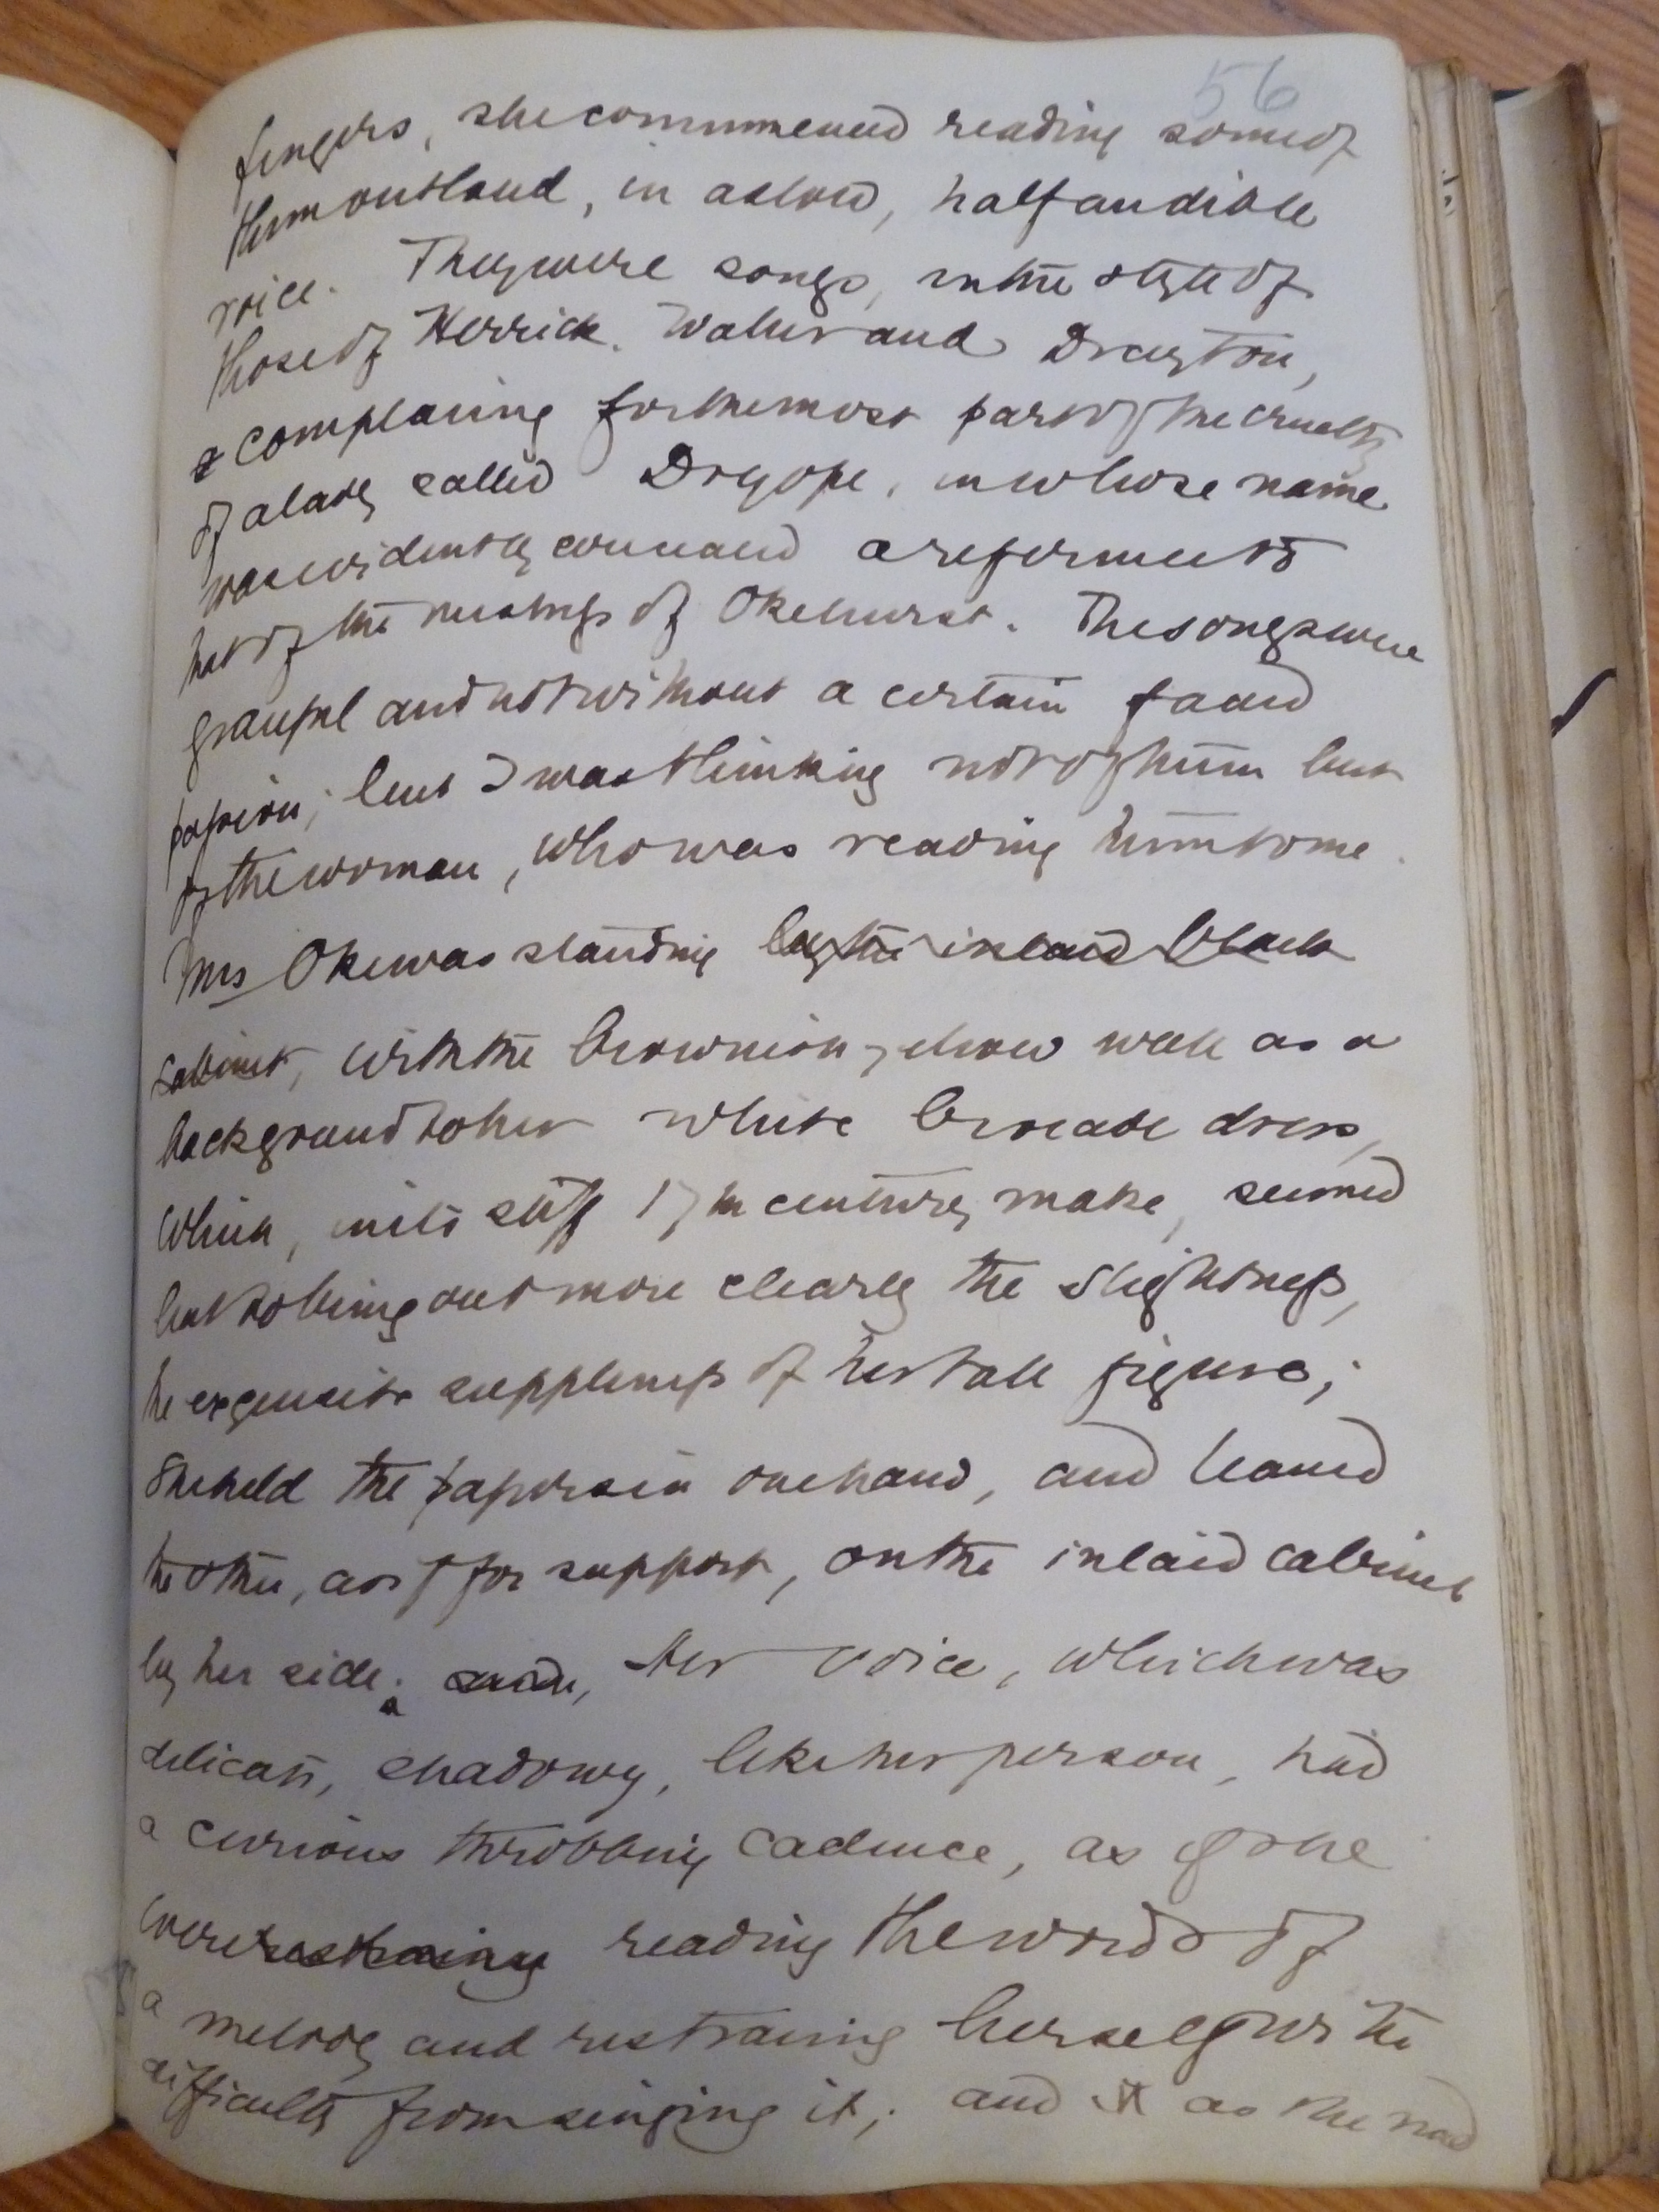 56
fingers, she commenced reading some of
them out loud, in a slow, half audible
voice. They were songs, in the style of
those of Herrick. Waller and Drayton,
complaining for the most part of the cruelty
of a lady called Dryope, in whose name
was evidently concealed a reference to
that of the mistress of Okehurst. The songs were
graceful and not without a certain faded
passion; but I was thinking not of them but
of the woman, who was reading them to me.
Mrs Oke was standing by the inlaid black
cabinet, with the brownish yellow wall as a
background to her white brocade dress,
which, in its stiff 17th century make, seemed
but to bring out more clearly the slightness,
the exquisite suppleness of her tall figure;
She held the papers in one hand, and leaned
the other, as if for support, on the inlaid cabinet
by her side. Her voice, which was
delicate, shadowy, like her person, had
a curious throbbing cadence, as if she
were restraining reading the words of
a melody and restraining herself with
difficulty from singing it; and as she read